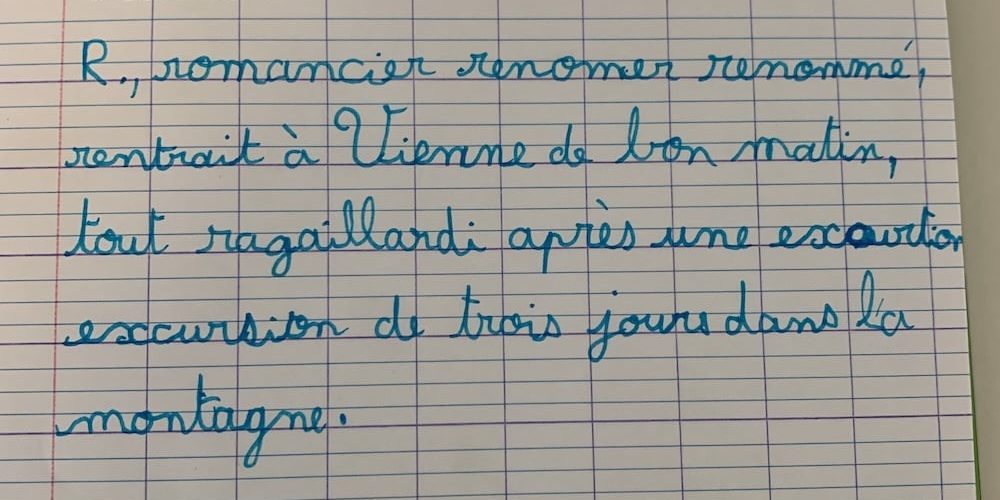 R., romancier renomer renommé,
rentrait à Vienne de bon matin,
tout ragaillardi après une
excursion de trois jours dans la
montagne.